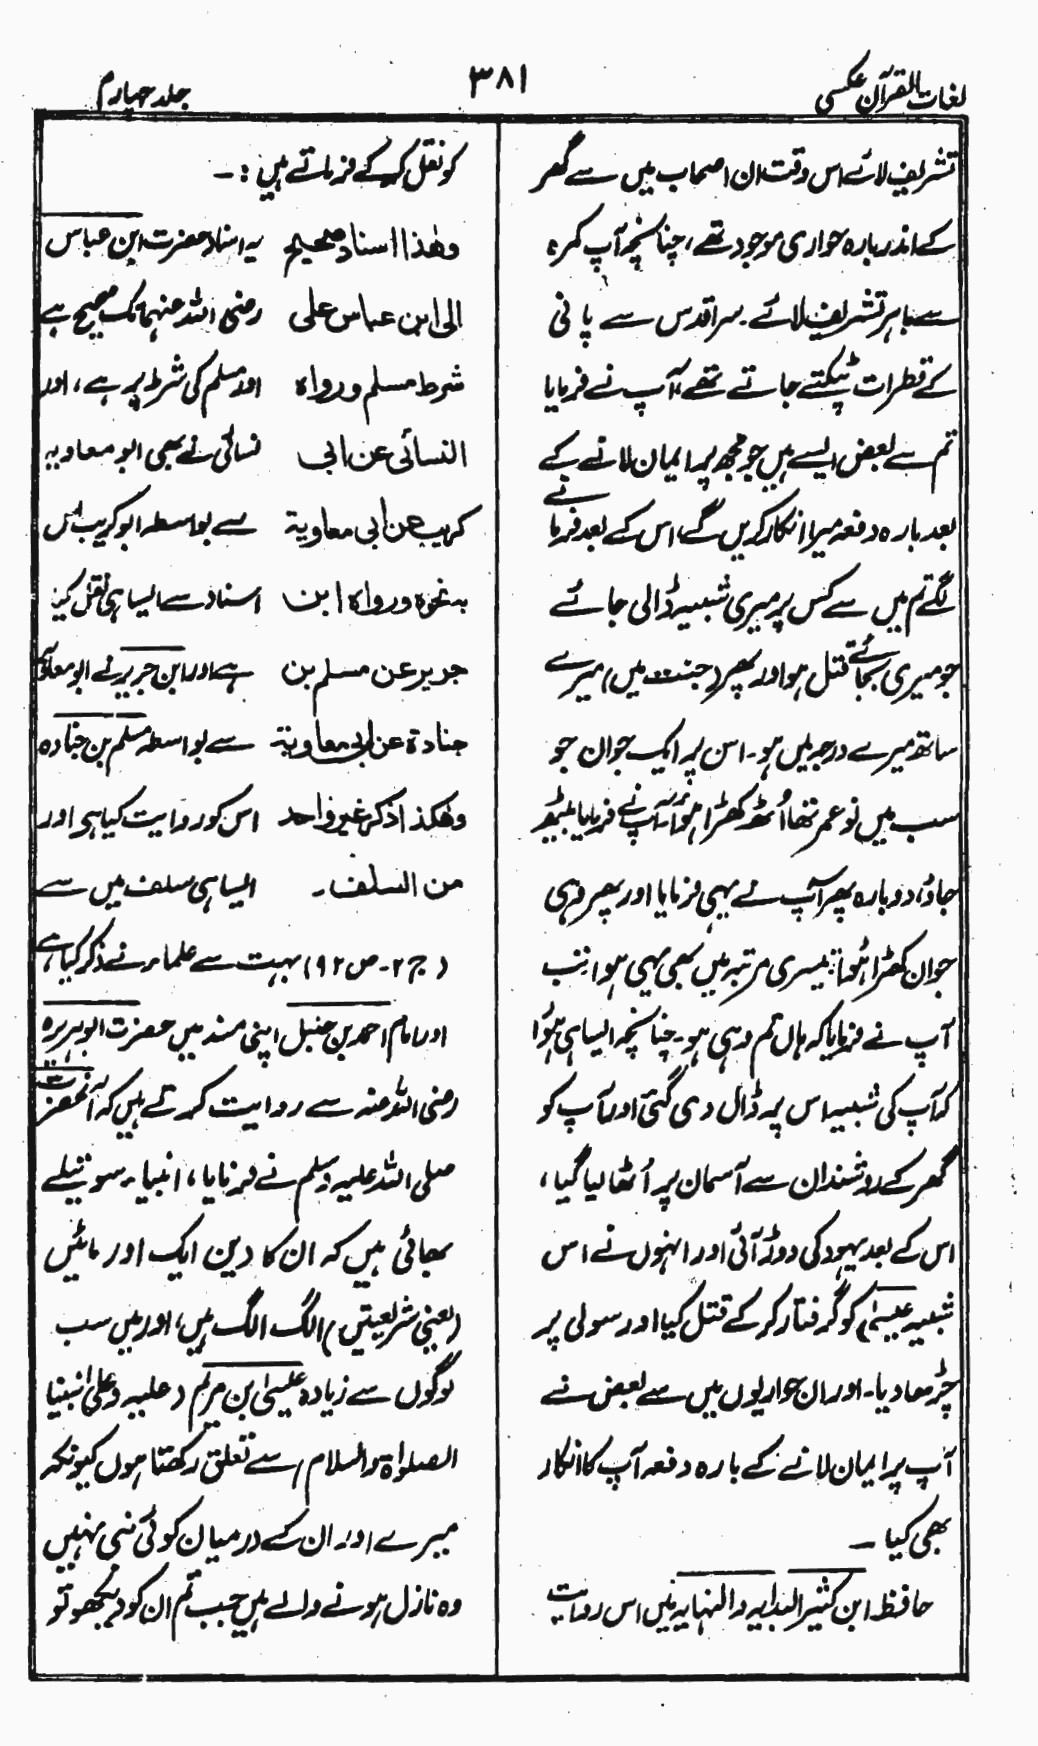 لغات القرآن عکسی
۳۸۱
جلد چہارم
تشریف لائے اس وقت ان اصحاب میں سے گھر
کے اندر بارہ حواری موجود تھے، چنانچہ آپ کمرہ
سے باہر تشریف لائے۔ سر اقدس سے پانی
کے قطرات ٹپکتے جاتے تھے، آپ نے فرمایا
تم سے بعض ایسے ہیں جو مجھ پر ایمان لانے کے
بعد بارہ دفعہ میرا انکار کریں گے، اس کے بعد فرمانے
لگے تم میں سے کس پر میری شبیہ ڈالی جائے
جو میری بجائے قتل ہو اور پھر (جنت میں) میرے
ساتھ میرے درجہ میں ہو۔ اس پر ایک جوان جو
سب میں نو عمر تھا اُٹھ کھڑا ہوا، آپ نے فرمایا بیٹھ
جاؤ، دوبارہ پھر آپ نے یہی فرمایا اور پھر وہی
جوان کھڑا ہُوا، تیسری مرتبہ میں بھی یہی ہوا، تب
آپ نے فرمایا کہ ہاں تم وہی ہو۔ چنانچہ ایسا ہی ہُوا
کہ آپ کی شبیہ اس پر ڈال دی گئی اور آپ کو
گھر کے روشندان سے آسمان پر اُٹھا لیا گیا،
اس کے بعد یہود کی دوڑ آئی اور انہوں نے اس
شبیہ عیسیٰؑ کو گرفتار کر کے قتل کیا اور سولی پر
چڑھا دیا۔ اور ان حواریوں میں سے بعض نے
آپ پر ایمان لانے کے بارہ دفعہ آپ کا انکار
بھی کیا۔
حافظ ابن کثیر البدایہ والنہایہ میں اس روایت
کو نقل کر کے فرماتے ہیں :۔
وھٰذا اسناد صحیح یہ اسناد حضرت ابن عباس
الی ابن عباس علی رضی اللہ عنہما تک صحیح ہے
شرط مسلم ورواہ اور مسلم کی شرط پر ہے، اور
النسائی عن ابی نسائی نے بھی ابو معاویہ
کریب عن ابی معاویۃ سے بواسطہ ابو کریب اس
بہ نحوہ ورواہ ابن اسناد سے ایسا ہی نقل کیا
جریر عن مسلم بن ہے اور ابن جریر نے ابو معاویہ
جنادۃ عن ابی معاویۃ سے بواسطہ مسلم بن جنادہ
وھٰکذا ذکر غیر واحد اس کو روایت کیا ہی اور
من السلف۔ ایسا ہی سلف میں سے
(ج ۲۔ ص ۹۲) بہت سے علماء نے ذکر کیا ہے،
اور امام احمد بن حنبل اپنی مسند میں حضرت ابو ہریرہ
رضی اللہ عنہ سے روایت کرتے ہیں کہ آنحضرت
صلی اللہ علیہ وسلم نے فرمایا، انبیاء سوتیلے
بھائی ہیں کہ ان کا دین ایک اور مائیں
(یعنی شریعتیں) الگ الگ ہیں، اور میں سب
لوگوں سے زیادہ عیسیٰ بن مریم (علیہ وعلیٰ نبینا
الصلوٰۃ والسلام) سے تعلق رکھتا ہوں کیونکہ
میرے اور ان کے درمیان کوئی نبی نہیں
وہ نازل ہونے والے ہیں جب تم ان کو دیکھو تو